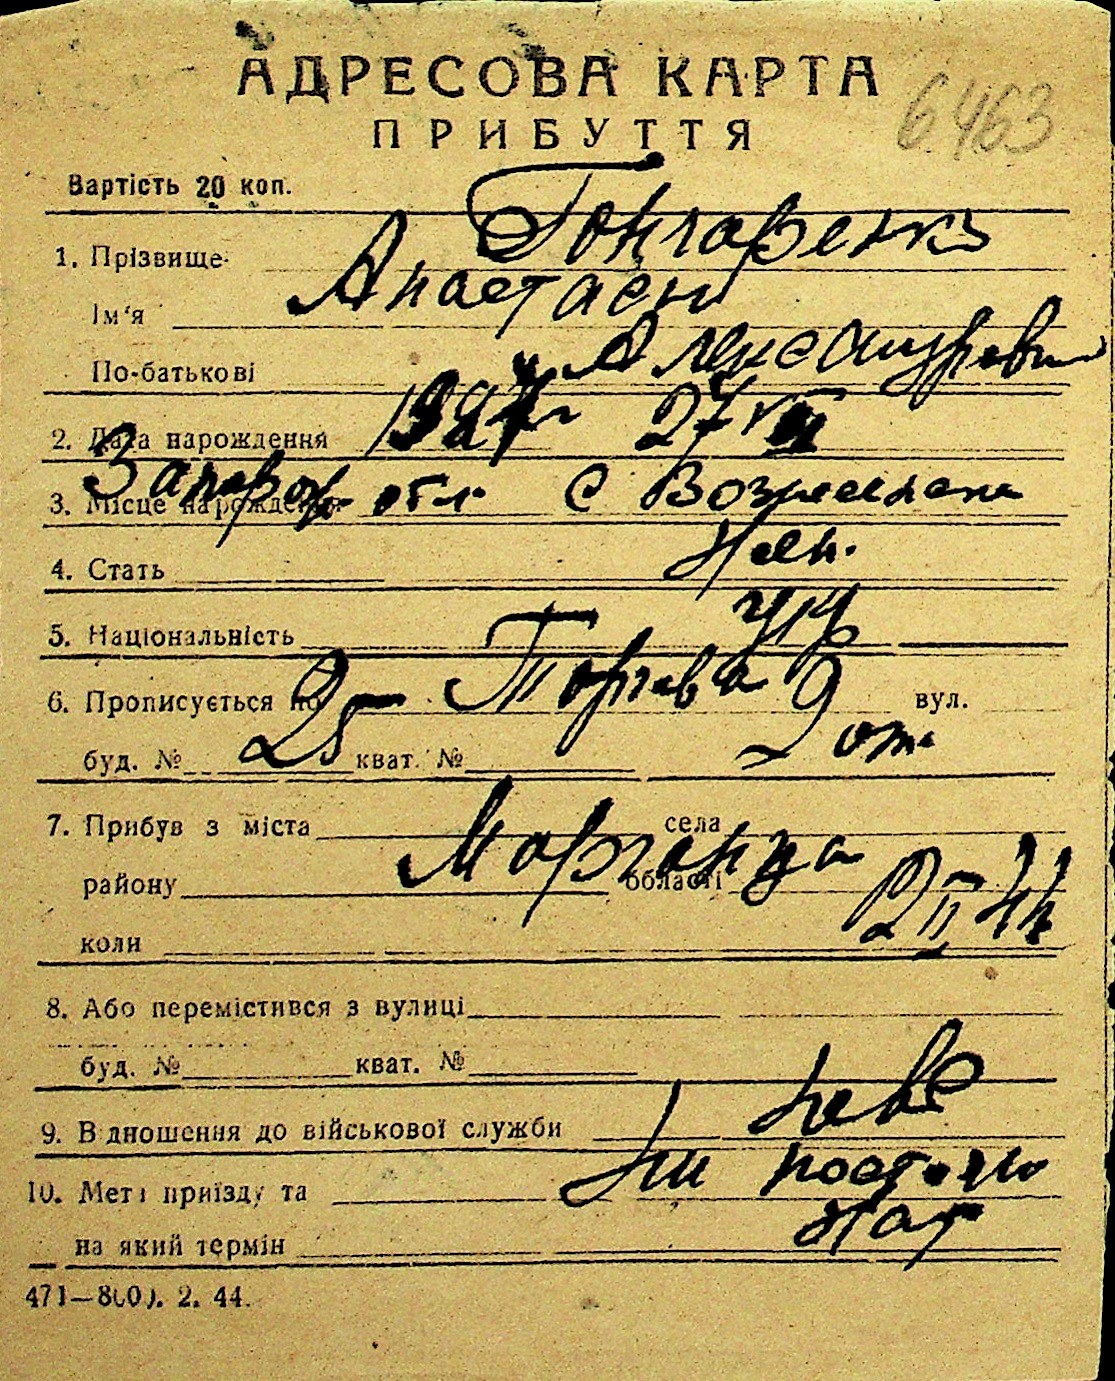 АДРЕСОВА КАРТА
6463
ПРИБУТТЯ
Вартість 20 коп.
1. Прізвище Гончаренко
Ім'я Анастасия
По-батькові Александровна
2. Дата народження 1927 г 27
3. Місце народження Запорож обл с Вознесенка
4. Стать жен.
5. Національність укр
6. Прописується по Торгова вул.
буд. № 25 кват. №
7. Прибув з міста села
району Марганца області
коли 2 II 44
8. Або перемістився з вулиці
буд. № кват. №
9. Відношення до військової служби
10. Мета приїзду та
на який термін
471—8000. 2. 44.